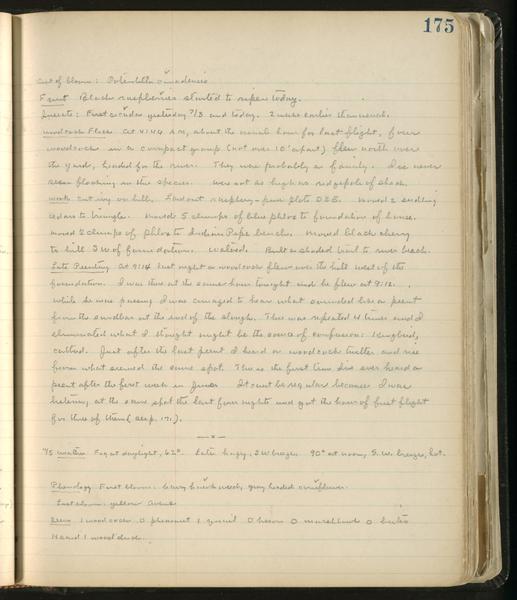 175
out of bloom: Potentilla canadensis
Fruit Black raspberries started to ripen today.
Insects: First cicadas yesterday 7/3 and today. 2 weeks earlier than usual.
Woodcock Flees. At 4:44 A.M., about the usual hour for last flight, four
woodcock in a compact group (not over 10' apart) flew north over
the yard, headed for the river. They were probably a family. I've never
seen flocking in this species. Were not as high as ridgepole of shack.
Work: Cut ivy on hill. Laid out raspberry - pine plots D & E. Moved 2 seedling
cedars to triangle. Moved 5 clumps of blue phlox to foundation of house.
Moved 2 clumps of phlox to Indian Pipe bench. Moved black cherry
to hill SW of foundation. Watered. Built a shaded trail to river beach.
Late Peenting At 9:14 last night a woodcock flew over the hill west of the
foundation. I was there at the same hour tonight and he flew at 9:12.
While he was passing I was amazed to hear what sounded like a peent
from the sandbar at the end of the slough. This was repeated 4 times and I
eliminated what I thought might be the source of confusion: kingbird,
catbird. Just after the last peent I heard a woodcock twitter and rise
from what seemed the same spot. This is the first time I've ever heard a
peent after the first week in June. It can't be regular because I was
listening at the same spot the last four nights and got the hour of first flight
for three of them (see p. 171).
7/5 Weather Fog at daylight, 62°. Later hazy, SW breeze. 90° at noon, S.W. breeze, hot.
Phenology First bloom: gray headed coneflower.
Last bloom: yellow avens
Seen 1 woodcock 0 pheasant 1 quail 0 heron 0 marsh hawk 0
Heard 1 wood duck.